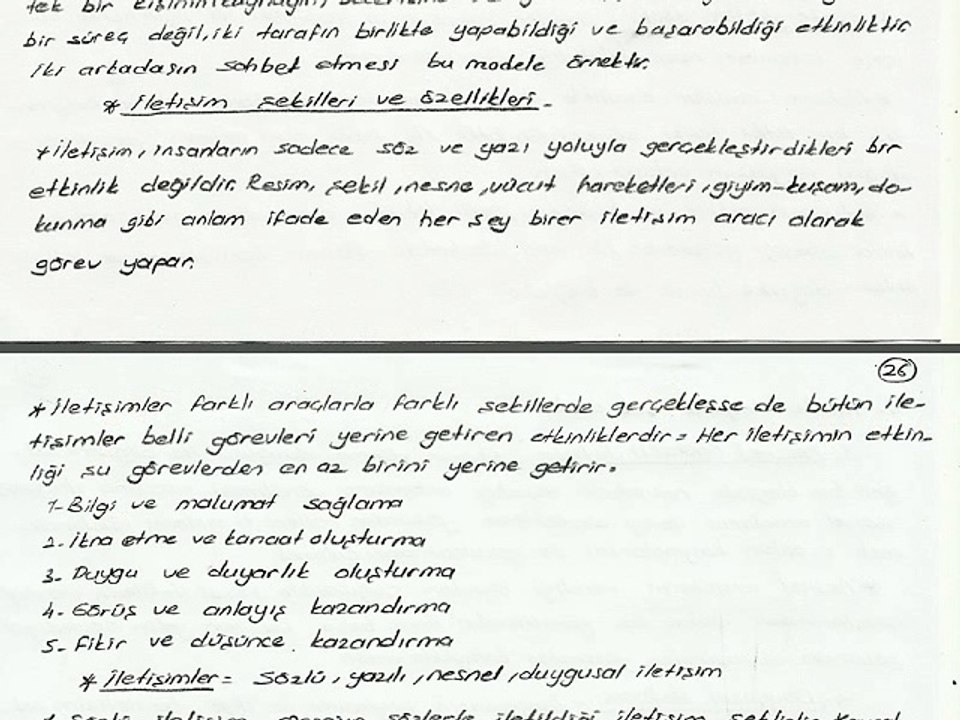 tek bir kişinin
bir süreç değil, iki tarafın birlikte yapabildiği ve başarabildiği etkinliktir.
iki arkadaşın sohbet etmesi bu modele örnektir.
* İletişim şekilleri ve özellikleri.
* İletişim, insanların sadece söz ve yazı yoluyla gerçekleştirdikleri bir
etkinlik değildir. Resim, şekil, nesne, vücut hareketleri, giyim-kuşam, do-
kunma gibi anlam ifade eden her şey birer iletişim aracı olarak
görev yapar.
26
* İletişimler farklı araçlarla farklı şekillerde gerçekleşse de bütün ile-
tişimler belli görevleri yerine getiren etkinliklerdir = Her iletişimin etkin-
liği şu görevlerden en az birini yerine getirir.
1- Bilgi ve malumat sağlama
2. İkna etme ve kanaat oluşturma
3- Duygu ve duyarlık oluşturma
4- Görüş ve anlayış kazandırma
5- Fikir ve düşünce kazandırma
* İletişimler = Sözlü, yazılı, nesnel, duygusal iletişim
sözlerle iletildiği iletişim